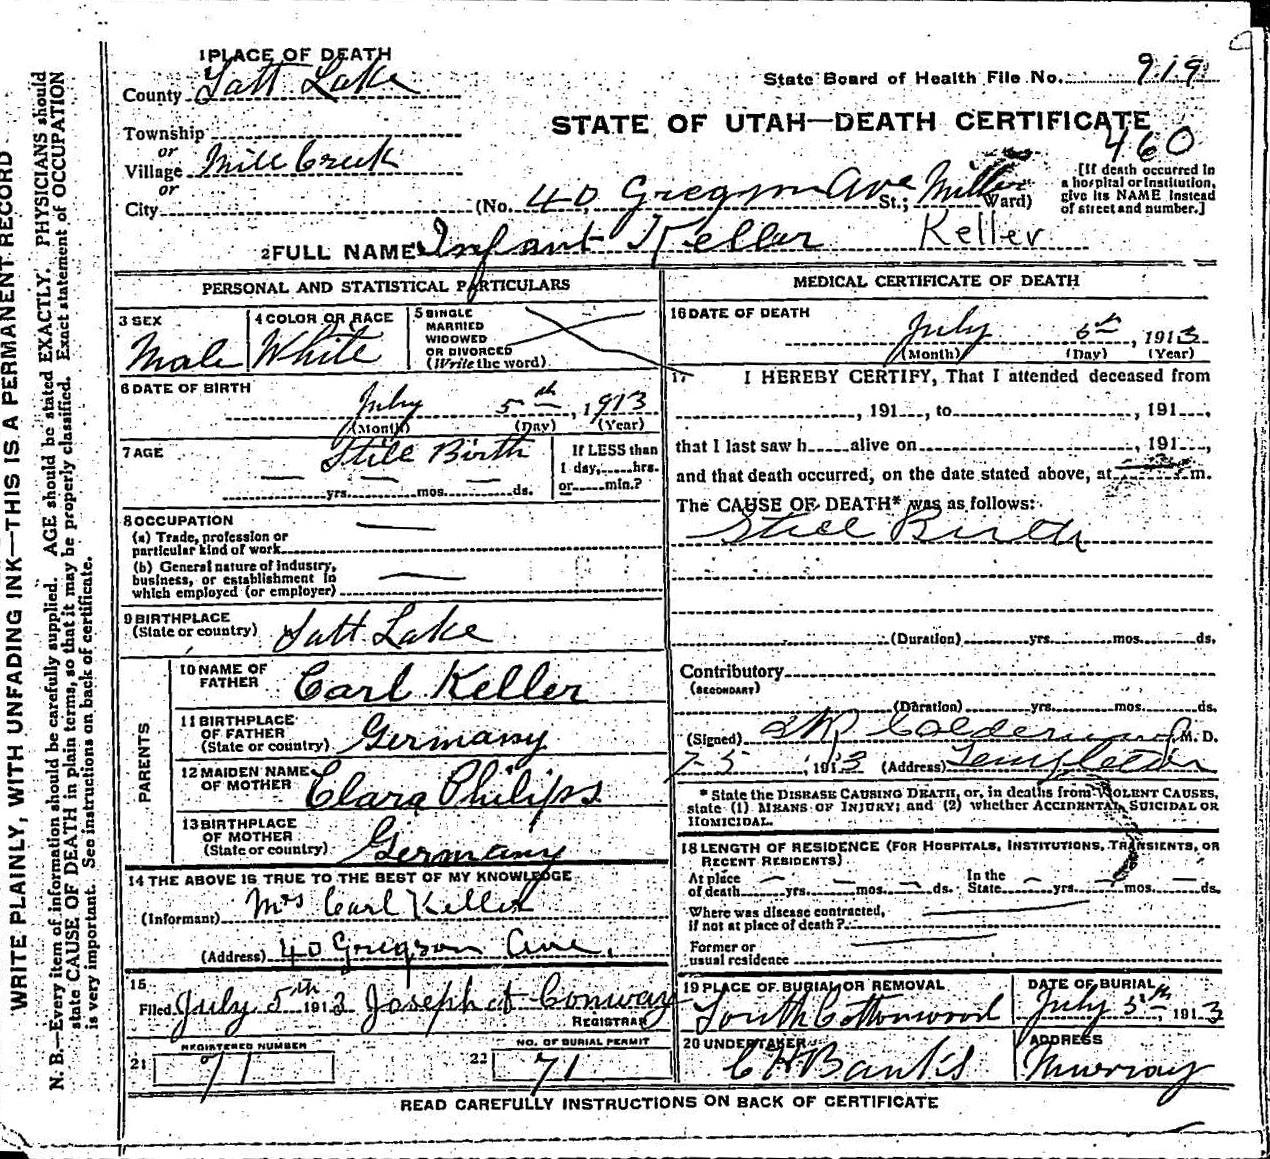 WRITE PLAINLY, WITH UNFADING INK—THIS IS A PERMANENT RECORD
N. B.—Every item of information should be carefully supplied. AGE should be stated EXACTLY. PHYSICIANS should
state CAUSE OF DEATH in plain terms, so that it may be properly classified. Exact statement of OCCUPATION
is very important. See instructions on back of certificate.
1 PLACE OF DEATH
County Salt Lake
State Board of Health File No. 919
STATE OF UTAH—DEATH CERTIFICATE
460
Township
or
Village Mill Creek
or
City (No. 40 Gregson Ave St.; Miller Ward)
[If death occurred in
a hospital or institution,
give its NAME instead
of street and number.]
2 FULL NAME Infant Keller Keller
PERSONAL AND STATISTICAL PARTICULARS
3 SEX Male
4 COLOR OR RACE White
5 SINGLE
MARRIED
WIDOWED
OR DIVORCED
(Write the word)
6 DATE OF BIRTH
July 5th, 1913
(Month) (Day) (Year)
7 AGE Still Birth
yrs. mos. ds.
If LESS than
1 day, hrs.
or min.?
8 OCCUPATION
(a) Trade, profession or
particular kind of work
(b) General nature of industry,
business, or establishment in
which employed (or employer)
9 BIRTHPLACE
(State or country) Salt Lake
PARENTS
10 NAME OF
FATHER Carl Keller
11 BIRTHPLACE
OF FATHER
(State or country) Germany
12 MAIDEN NAME
OF MOTHER Clara Philips
13 BIRTHPLACE
OF MOTHER
(State or country) Germany
14 THE ABOVE IS TRUE TO THE BEST OF MY KNOWLEDGE
(Informant) Mrs Carl Keller
(Address) 40 Gregson Ave.
15
Filed July 5th 1913 Joseph A Conway
REGISTRAR
21 REGISTERED NUMBER
71
22 NO. OF BURIAL PERMIT
71
MEDICAL CERTIFICATE OF DEATH
16 DATE OF DEATH
July 5th, 1913
(Month) (Day) (Year)
17 I HEREBY CERTIFY, That I attended deceased from
, 191 , to , 191 ,
that I last saw h alive on , 191 ,
and that death occurred, on the date stated above, at m.
The CAUSE OF DEATH* was as follows:
Still Birth
(Duration) yrs. mos. ds.
Contributory
(SECONDARY)
(Duration) yrs. mos. ds.
(Signed) M. D.
7-5, 1913 (Address) Templeton
* State the DISEASE CAUSING DEATH, or, in deaths from VIOLENT CAUSES,
state (1) MEANS OF INJURY; and (2) whether ACCIDENTAL, SUICIDAL OR
HOMICIDAL.
18 LENGTH OF RESIDENCE (FOR HOSPITALS, INSTITUTIONS, TRANSIENTS, OR
RECENT RESIDENTS)
At place
of death yrs. mos. ds.
In the
State yrs. mos. ds.
Where was disease contracted,
if not at place of death?
Former or
usual residence
19 PLACE OF BURIAL OR REMOVAL
South Cottonwood
DATE OF BURIAL
July 5th, 1913
20 UNDERTAKER
C H Banks
ADDRESS
Murray
READ CAREFULLY INSTRUCTIONS ON BACK OF CERTIFICATE